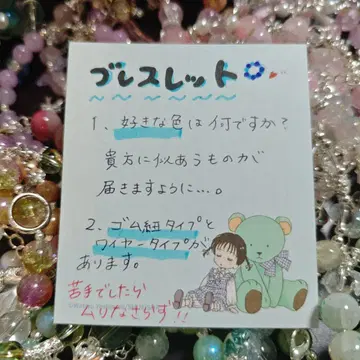 ブレスレット
1、好きな色は何ですか?
貴方に似あうものが
届きますように…。
2、ゴム紐タイプと
ワイヤータイプが
あります。
苦手でしたら
ムリなさらず!!